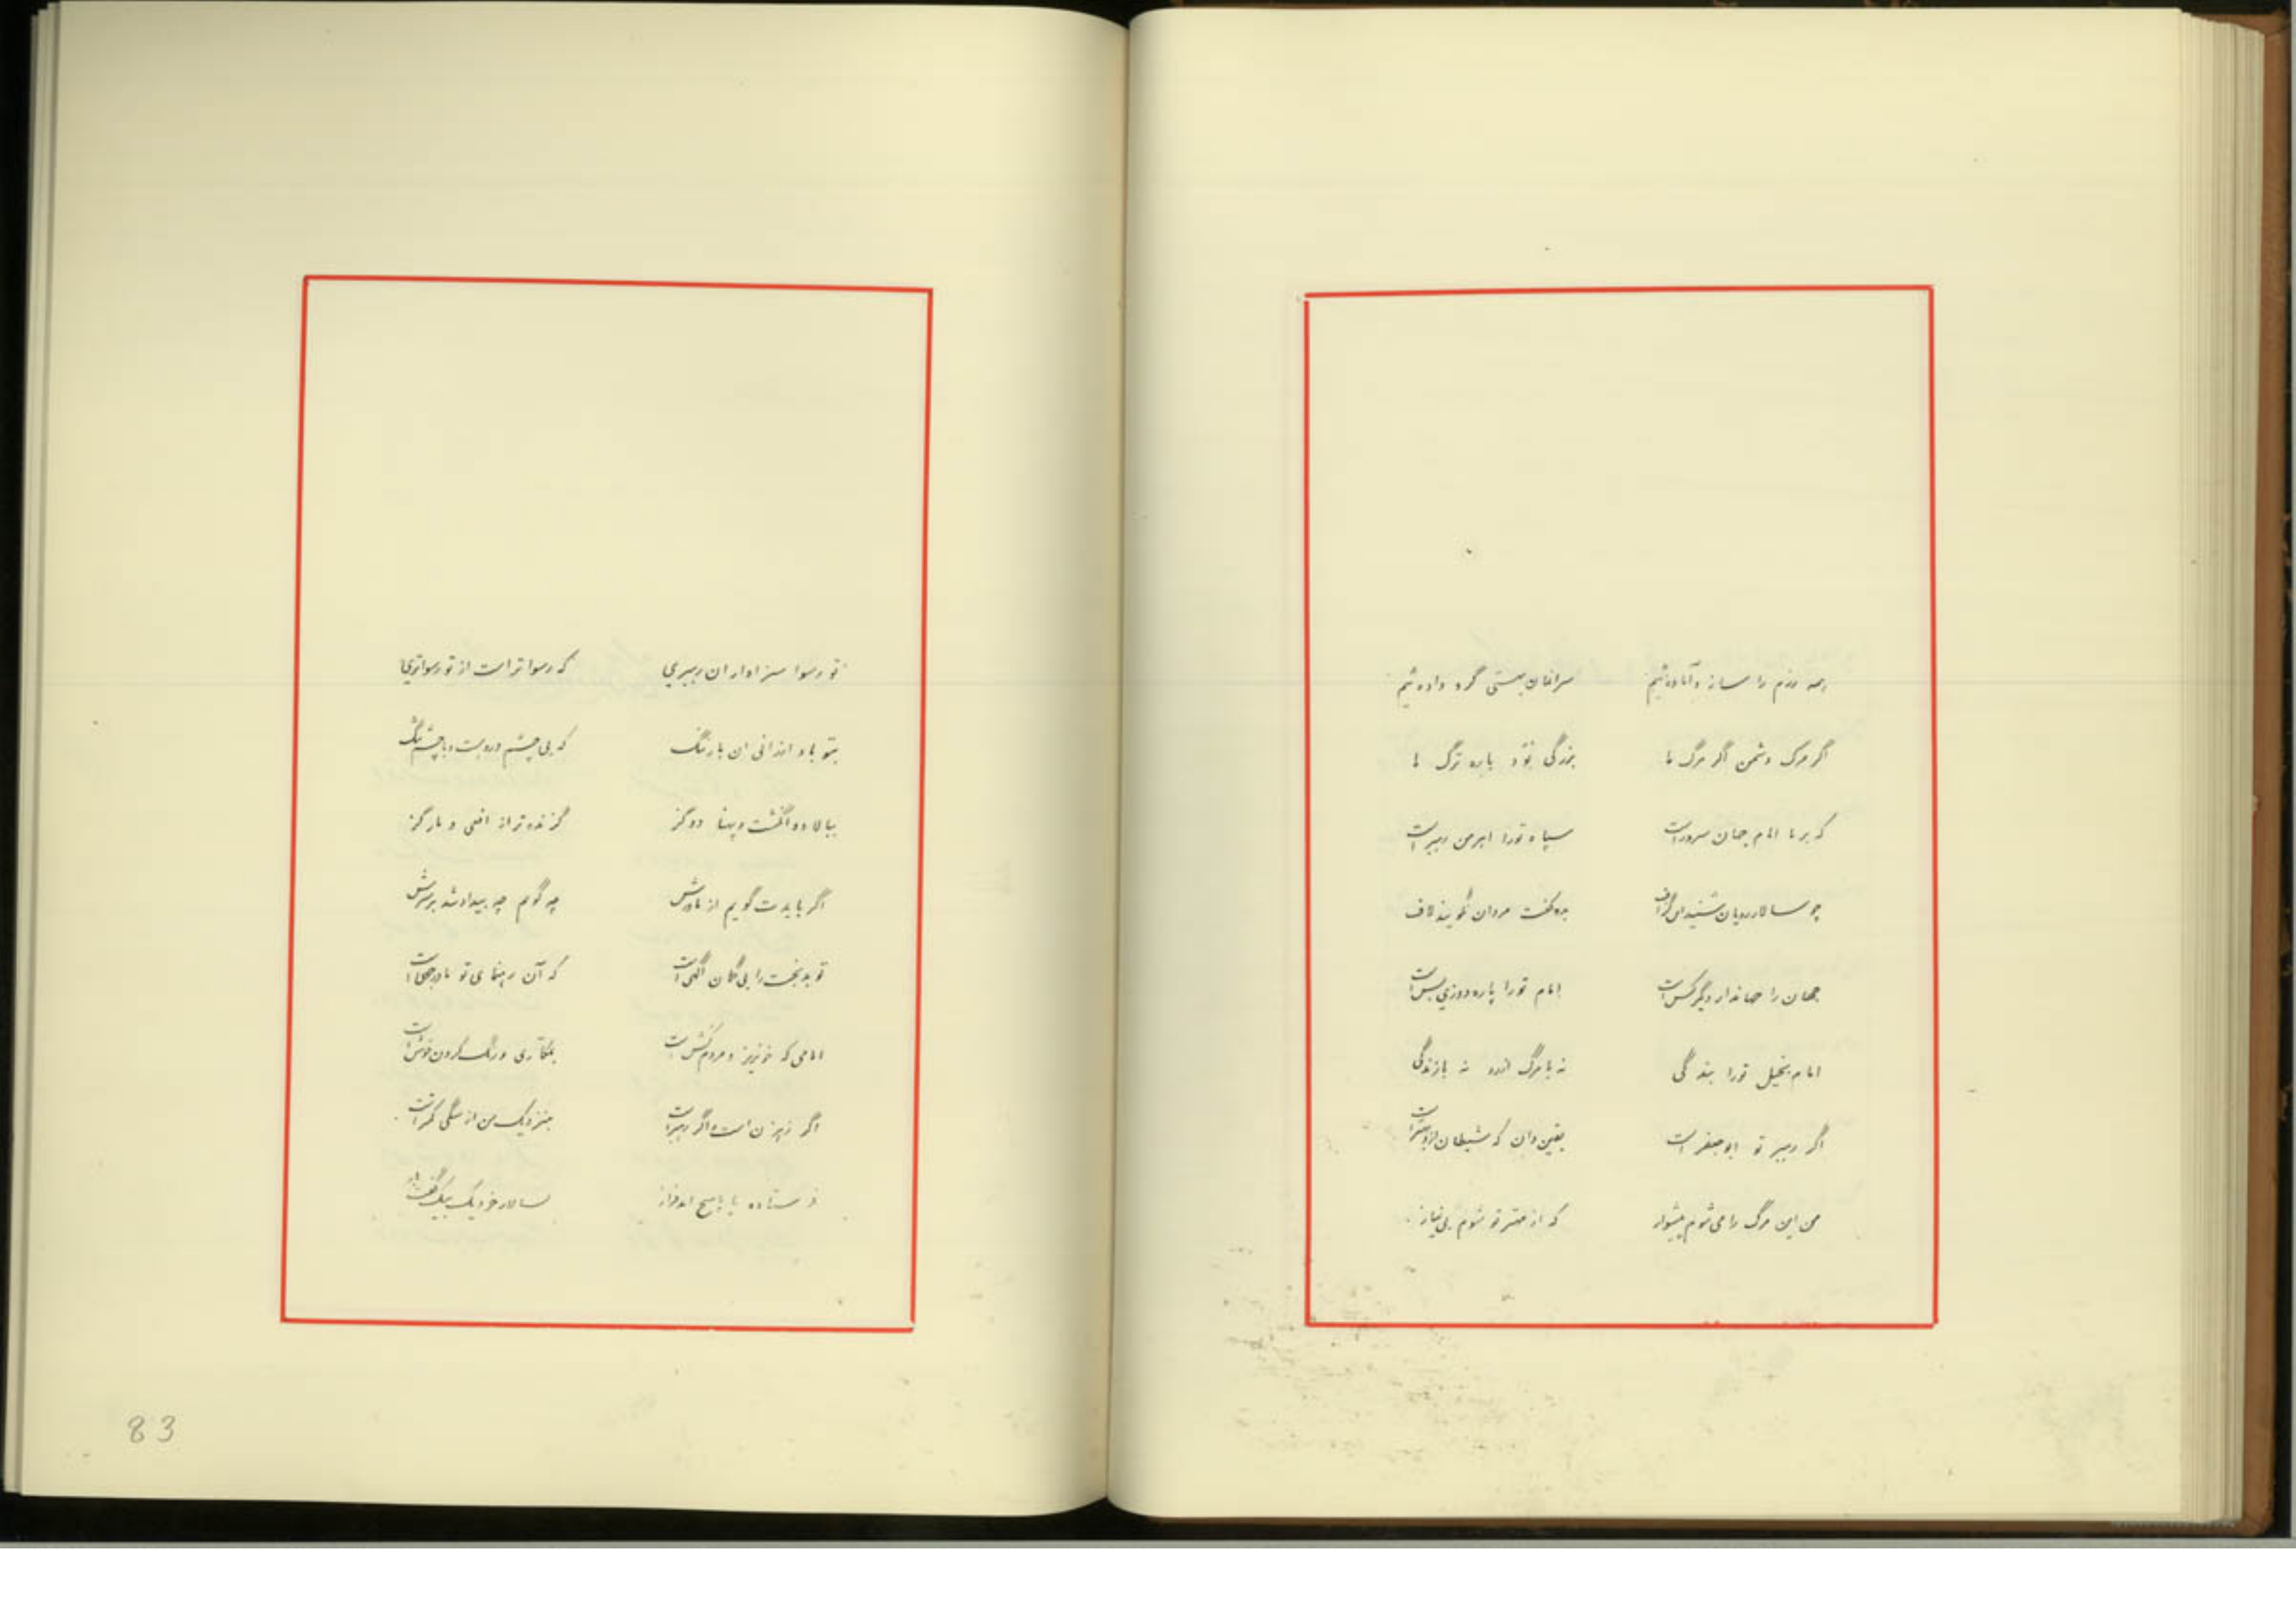 همه رزم را ساز و آماده‌ایم سراغان هستی گرو داده‌ایم
اگر مرگ دشمن اگر مرگ ما بزرگی تو د باره ترگ ما
که بر ما امام جهان سرور است سپاه تورا اهرمن رهبر است
چو سالار رویان شنید این گزاف بدو گفت مردان نگویند لاف
جهان را جهاندار دیگر کس است امام تورا پاره‌دوزی بس است
امام بخیل تورا بندگی نه با مرگ ارزد نه با زندگی
اگر رهبر تو ابوجعفر است یقین دان که شیطان ازو بهتر است
من این مرگ را می‌شوم پیشواز که از مهتر تو شوم بی‌نیاز
تو رسوا سزاوار ان رهبری که رسواتر است از تو رسواتری
بتو باد ارزانی ان بار ننگ که بی چشم و رو بست و با چشم تنگ
ببالا دو انگشت و پهنا دو گز گزنده‌تر از افعی و مار گز
اگر بایدت گویم از مادرش چه گویم چه بیداد شد بر سرش
تو بدبخت را بی گمان آگهی است که آن رهنمای تو مادر است
امامی که خونریز و مردم‌کش است بمکاری و رنگ کردن خوش است
اگر رهزن است و اگر رهبر است بنزدیک من از سگی کمتر است
فرستاده با پاسخ اندفراز بسالار خود یک بیک گفت باز
83